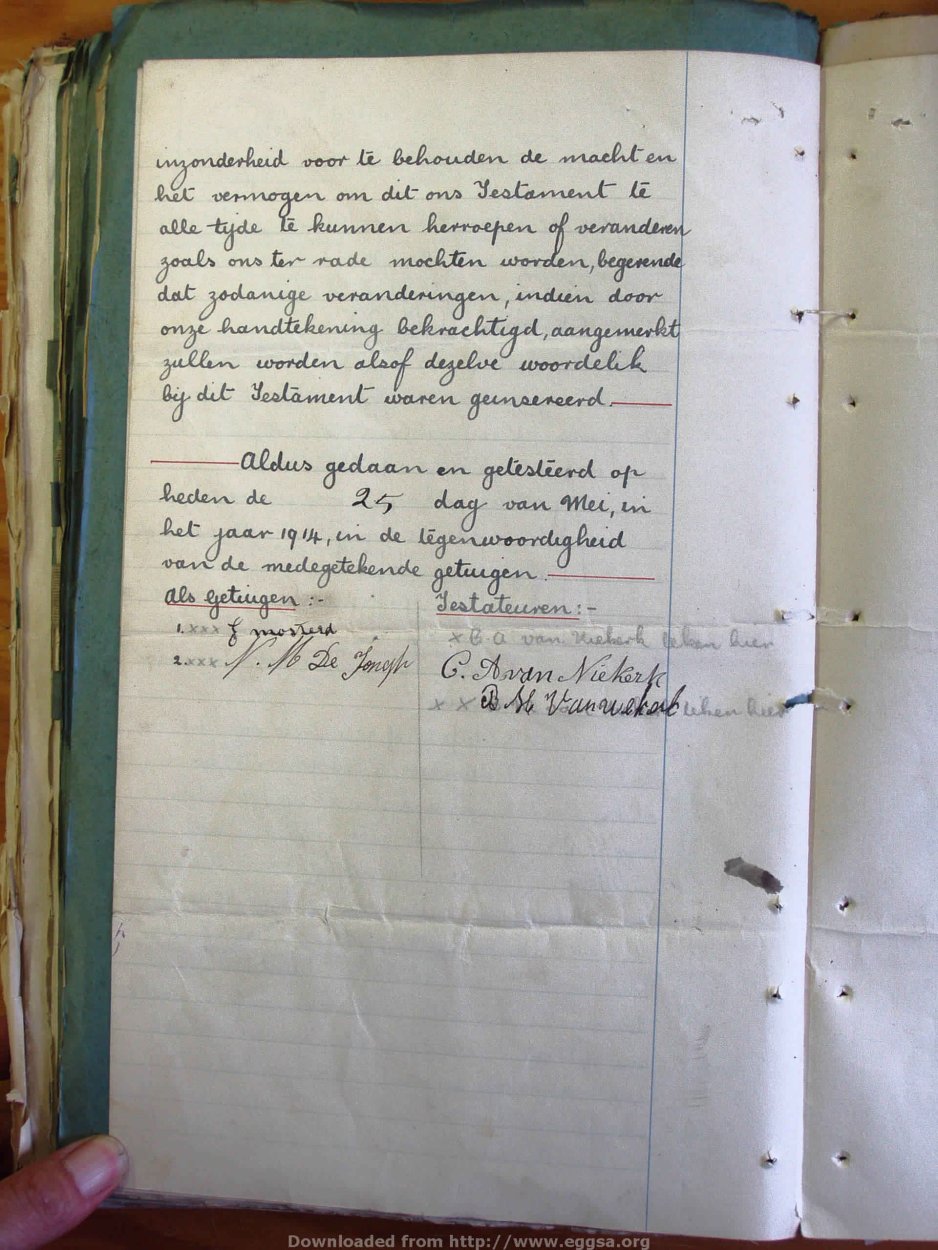 inzonderheid voor te behouden de macht en
het vermogen om dit ons Testament te
alle tyde te kunnen herroepen of veranderen
zoals ons ter rade mochten worden, begerende
dat zodanige veranderingen, indien door
onze handtekening bekrachtigd, aangemerkt
zullen worden alsof dezelve woordelik
bij dit Testament waren geinsereerd.
Aldus gedaan en getesteerd op
heden de 25 dag van Mei, in
het jaar 1914, in de tegenwoordigheid
van de medegetekende getuigen.
Als Getuigen :-
1. xxx mosterd
2. xxx N. M De Jongh
Testateuren :-
x C. A. van Niekerk teken hier
C. A van Niekerk
x x teken hier
M Van niekerk
Downloaded from http://www.eggsa.org